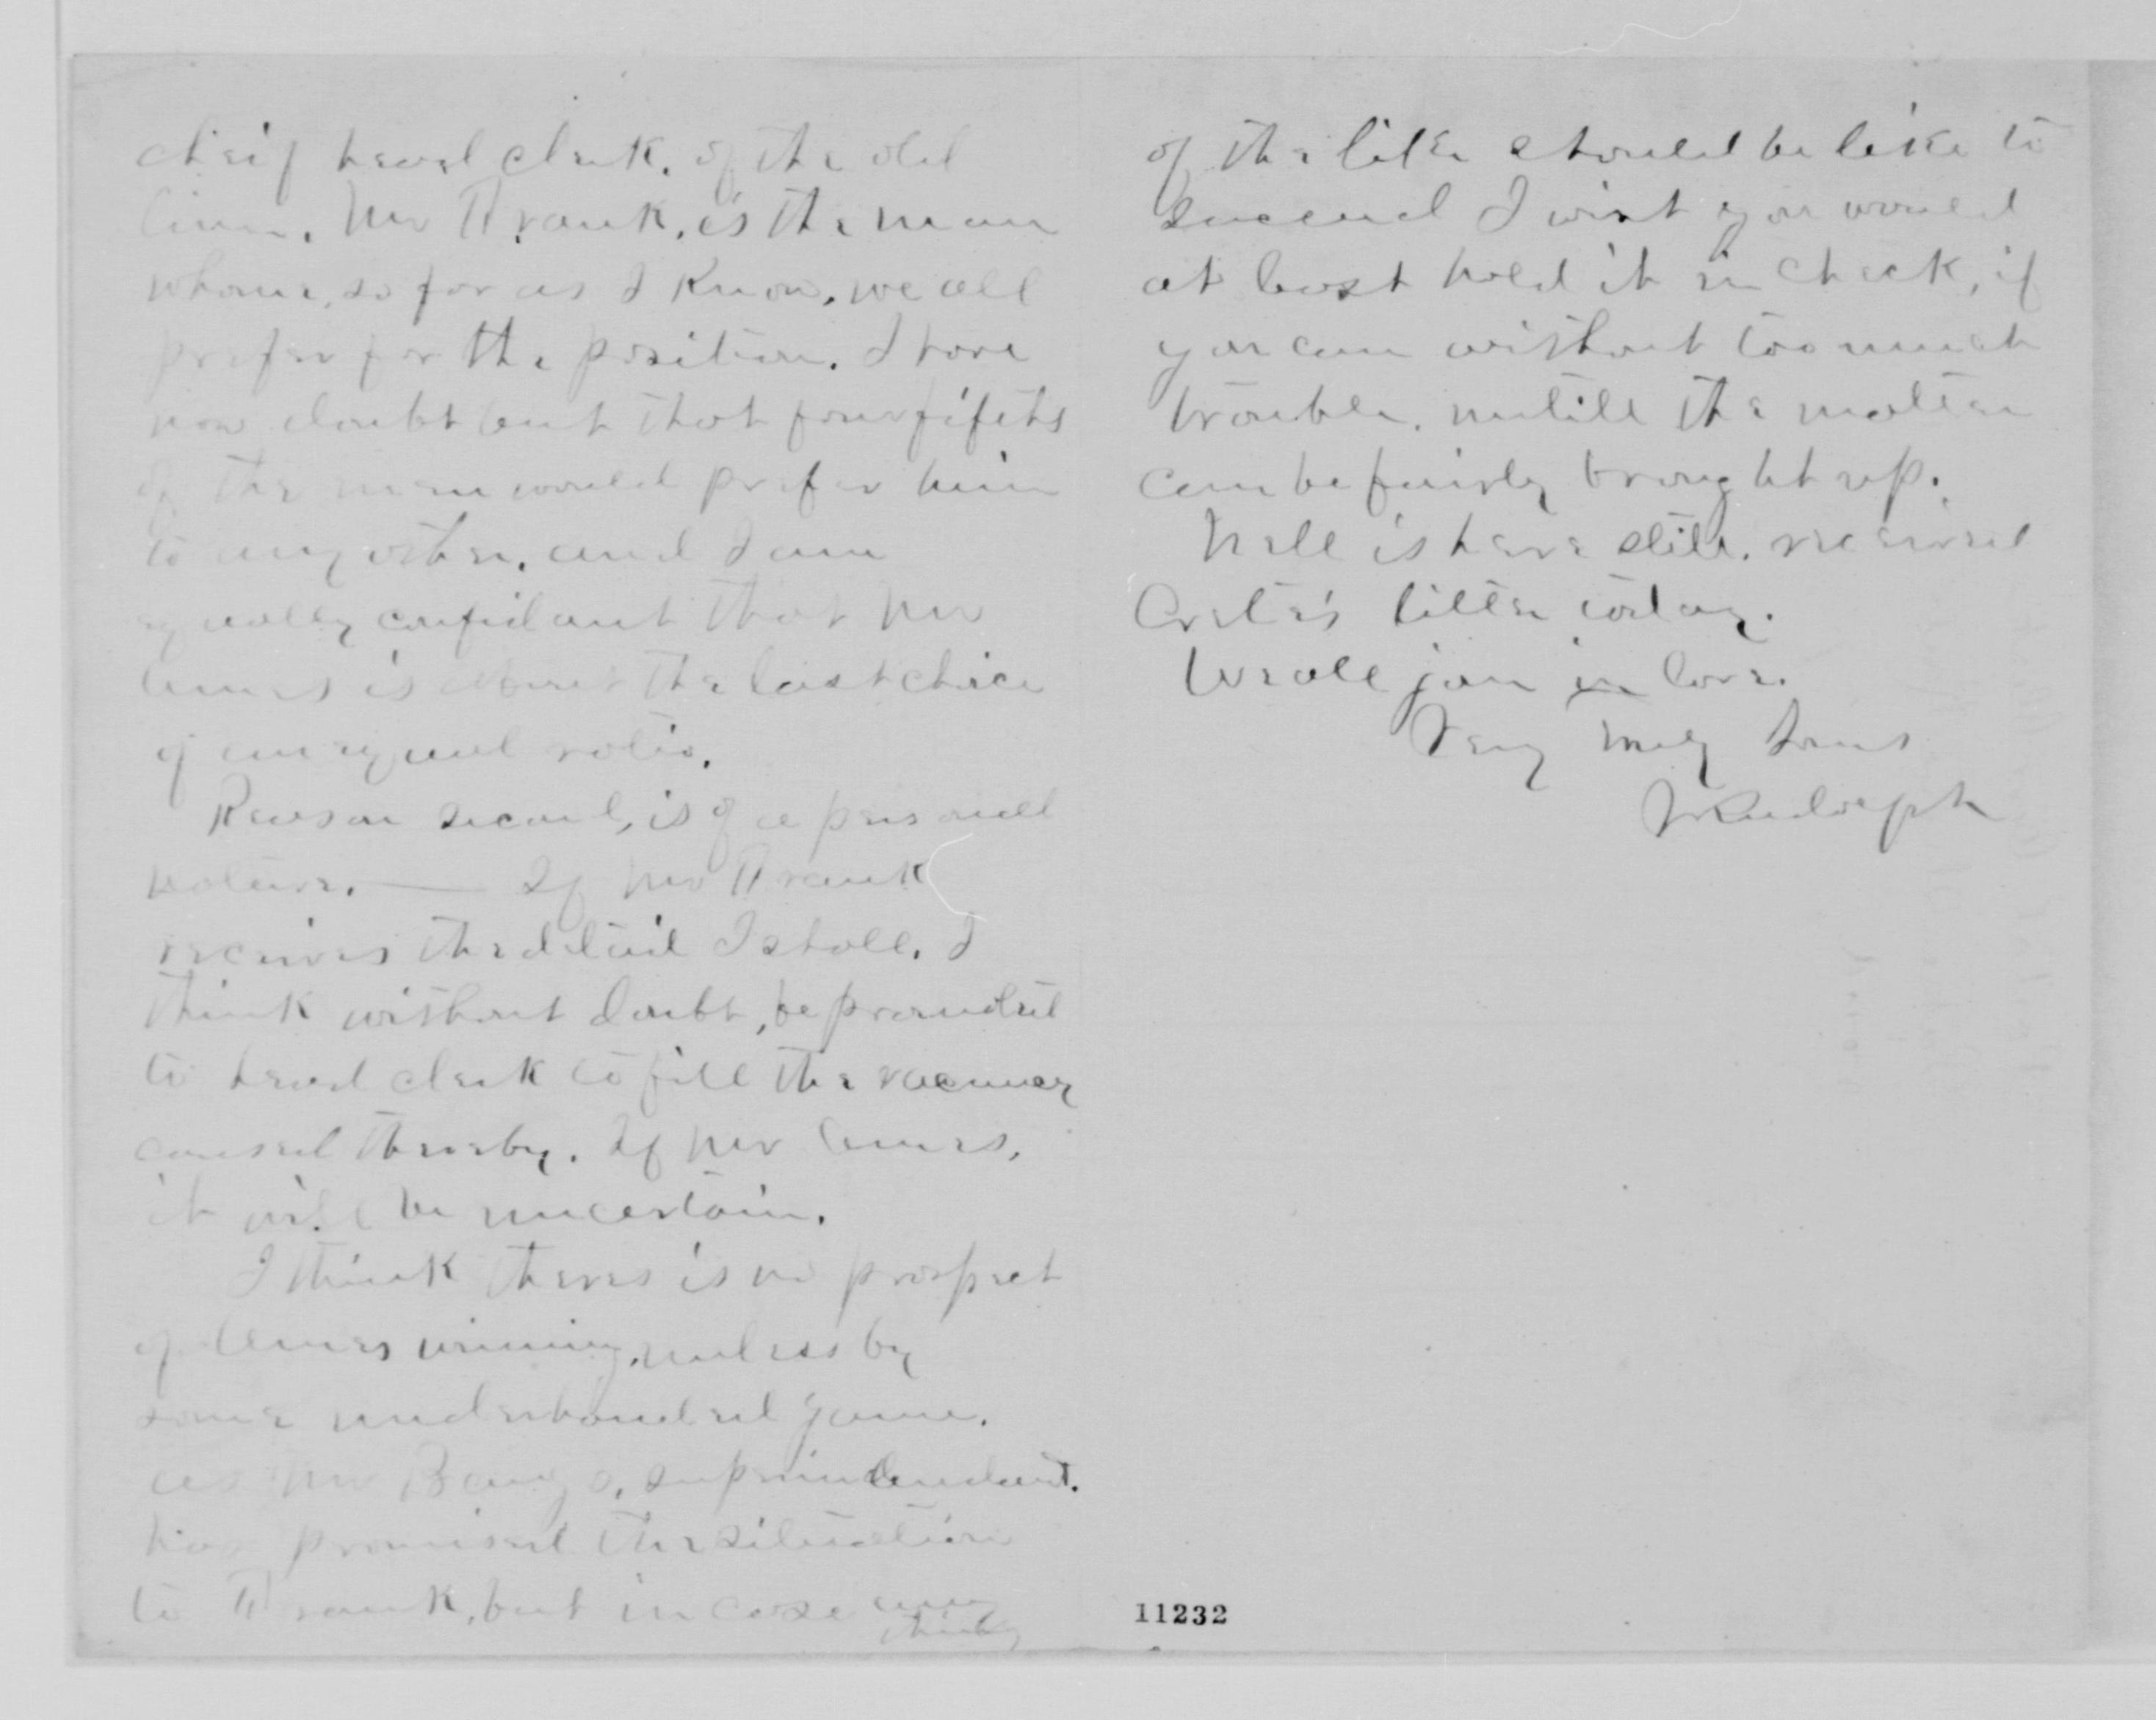 cheif head clerk. of the old
line. Mr Frank. is the man
whome, so far as I know. we all
prefer for the position. I have
now doubt but that four fifths
of the men would prefer him
to any other. and I am
equally confidant that Mr
is the last choice
of an equal ratio.
Reason second, is of a personall
nature. — If Mr Frank
receives the detail I shall. I
think without doubt, be promoted
to head clerk to fill the vacancy
caused thereby. If Mr
it will be uncertain.
I think theres is no prospect
of winning. unless by
some underhanded game.
as Mr Bangs. superindendant.
has promised the situation
to Frank, but in case any
thing
of the like should be like to
succeed I wish you would
at least hold it in check, if
you can without too much
trouble. untill the matter
can be fairly brought up.
Nell is here still. received
Crete's letter today.
We all join in love.
Very truly Yours
J Rudolph
11232